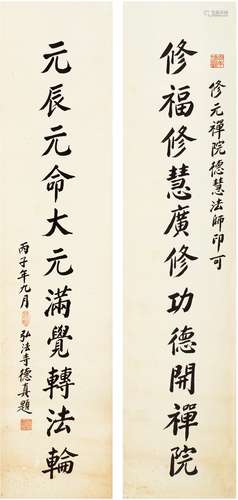 修元禪院德慧法師印可
修福修慧廣修功德開禪院
元辰元命大元滿覺轉法輪
丙子年九月
弘法寺德真題